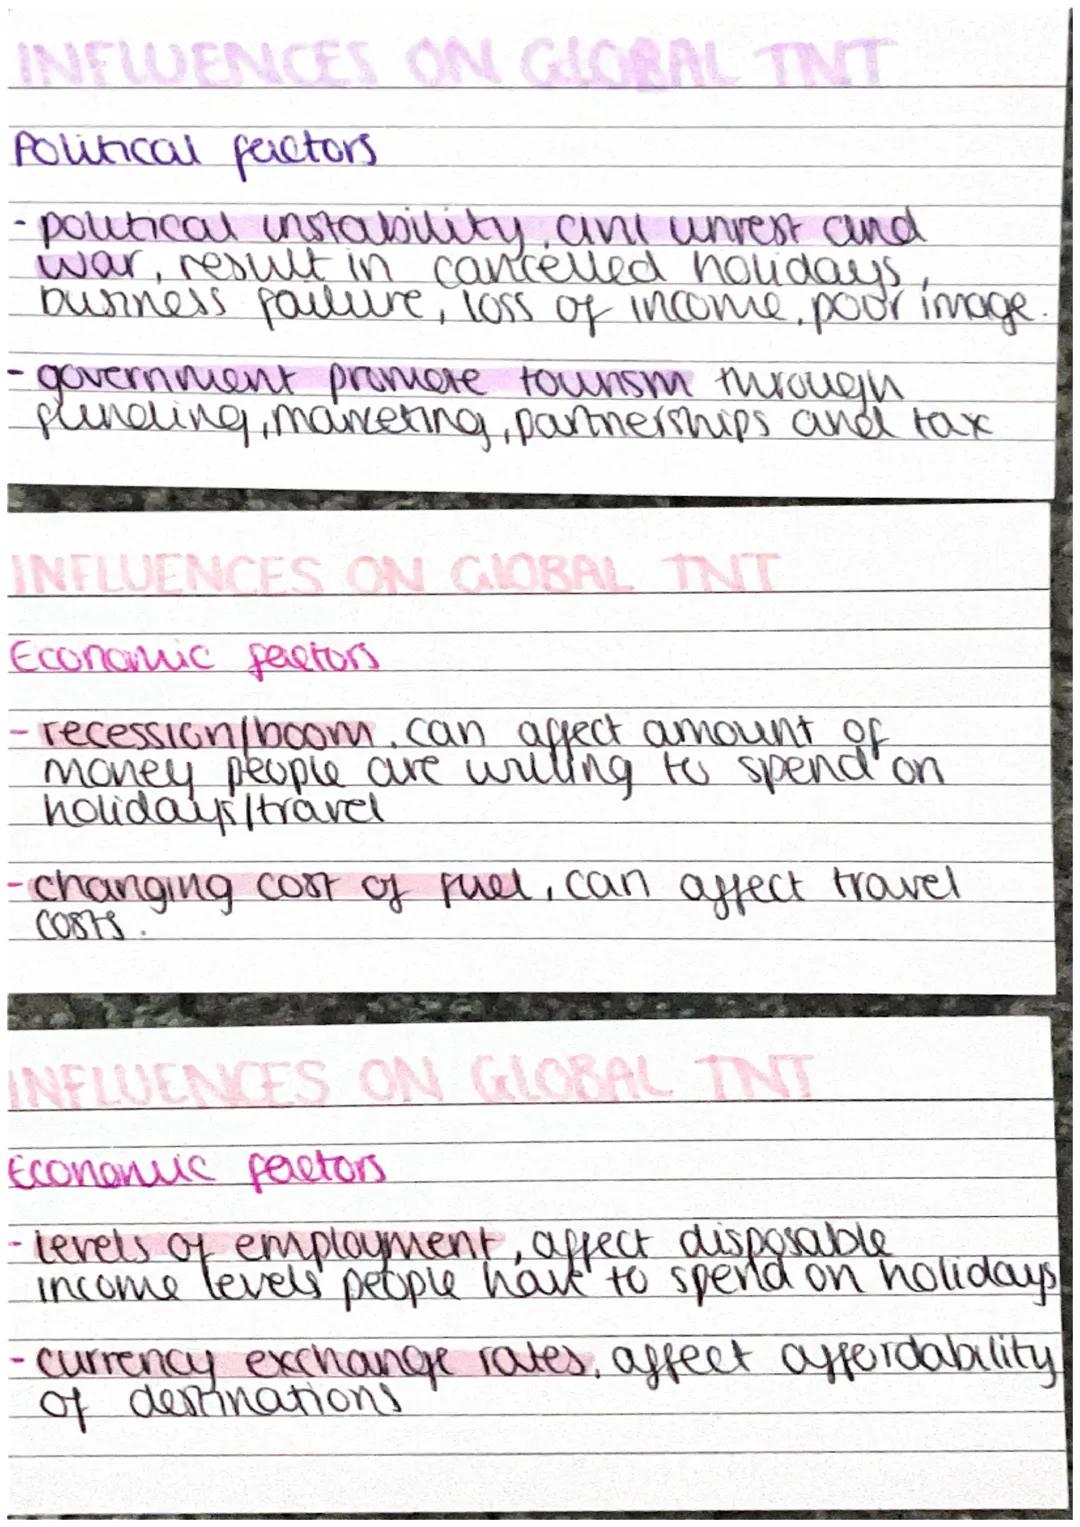 INFLUENCES ON GLOBAL TNT
Political factors
- political instability, civil unrest and
war, result in cancelled holidays,
business failure, loss of income, poor image.
- government promote tourism through
funding, marketing, partnerships and tax
INFLUENCES ON GLOBAL TNT
Economic factors
- recession/boom, can affect amount of
money people are willing to spend on
holidays/travel
- changing cost of fuel, can affect travel
costs.
INFLUENCES ON GLOBAL TNT
Economic factors
- levels of employment, affect disposable
income levels people have to spend on holidays
- currency exchange rates, affect affordability
of destinations